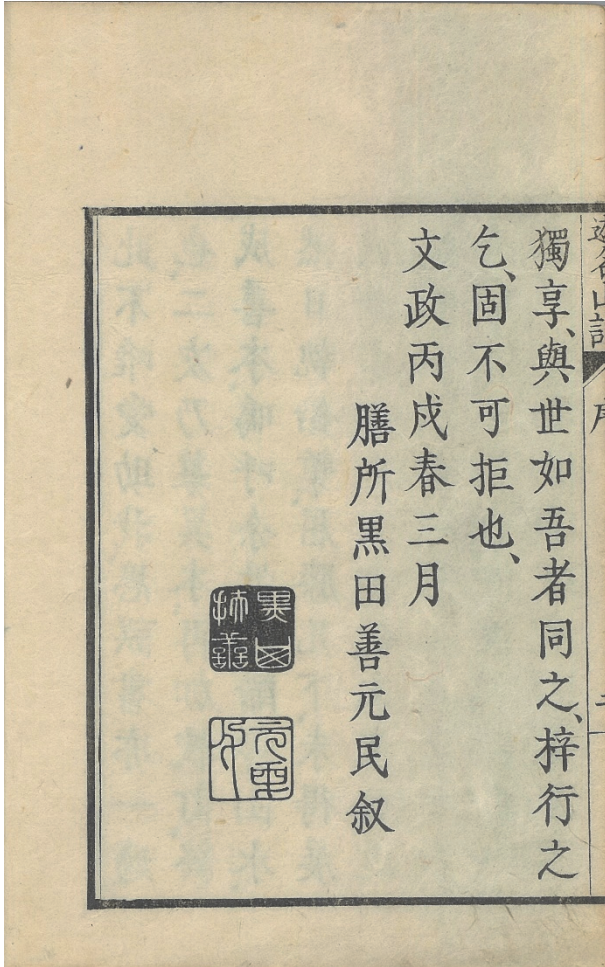 獨享、與世如吾者同之、梓行之
乞、固不可拒也、
文政丙戌春三月
膳所黒田善元民叙